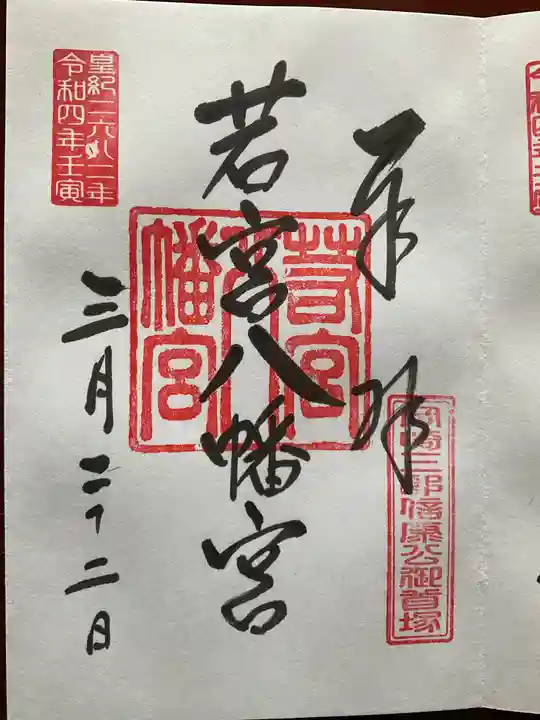 奉拝
岡崎三郎信康公御首塚
若宮八幡宮
若宮八幡宮
皇紀二六八二年
令和四年壬寅
三月二十二日